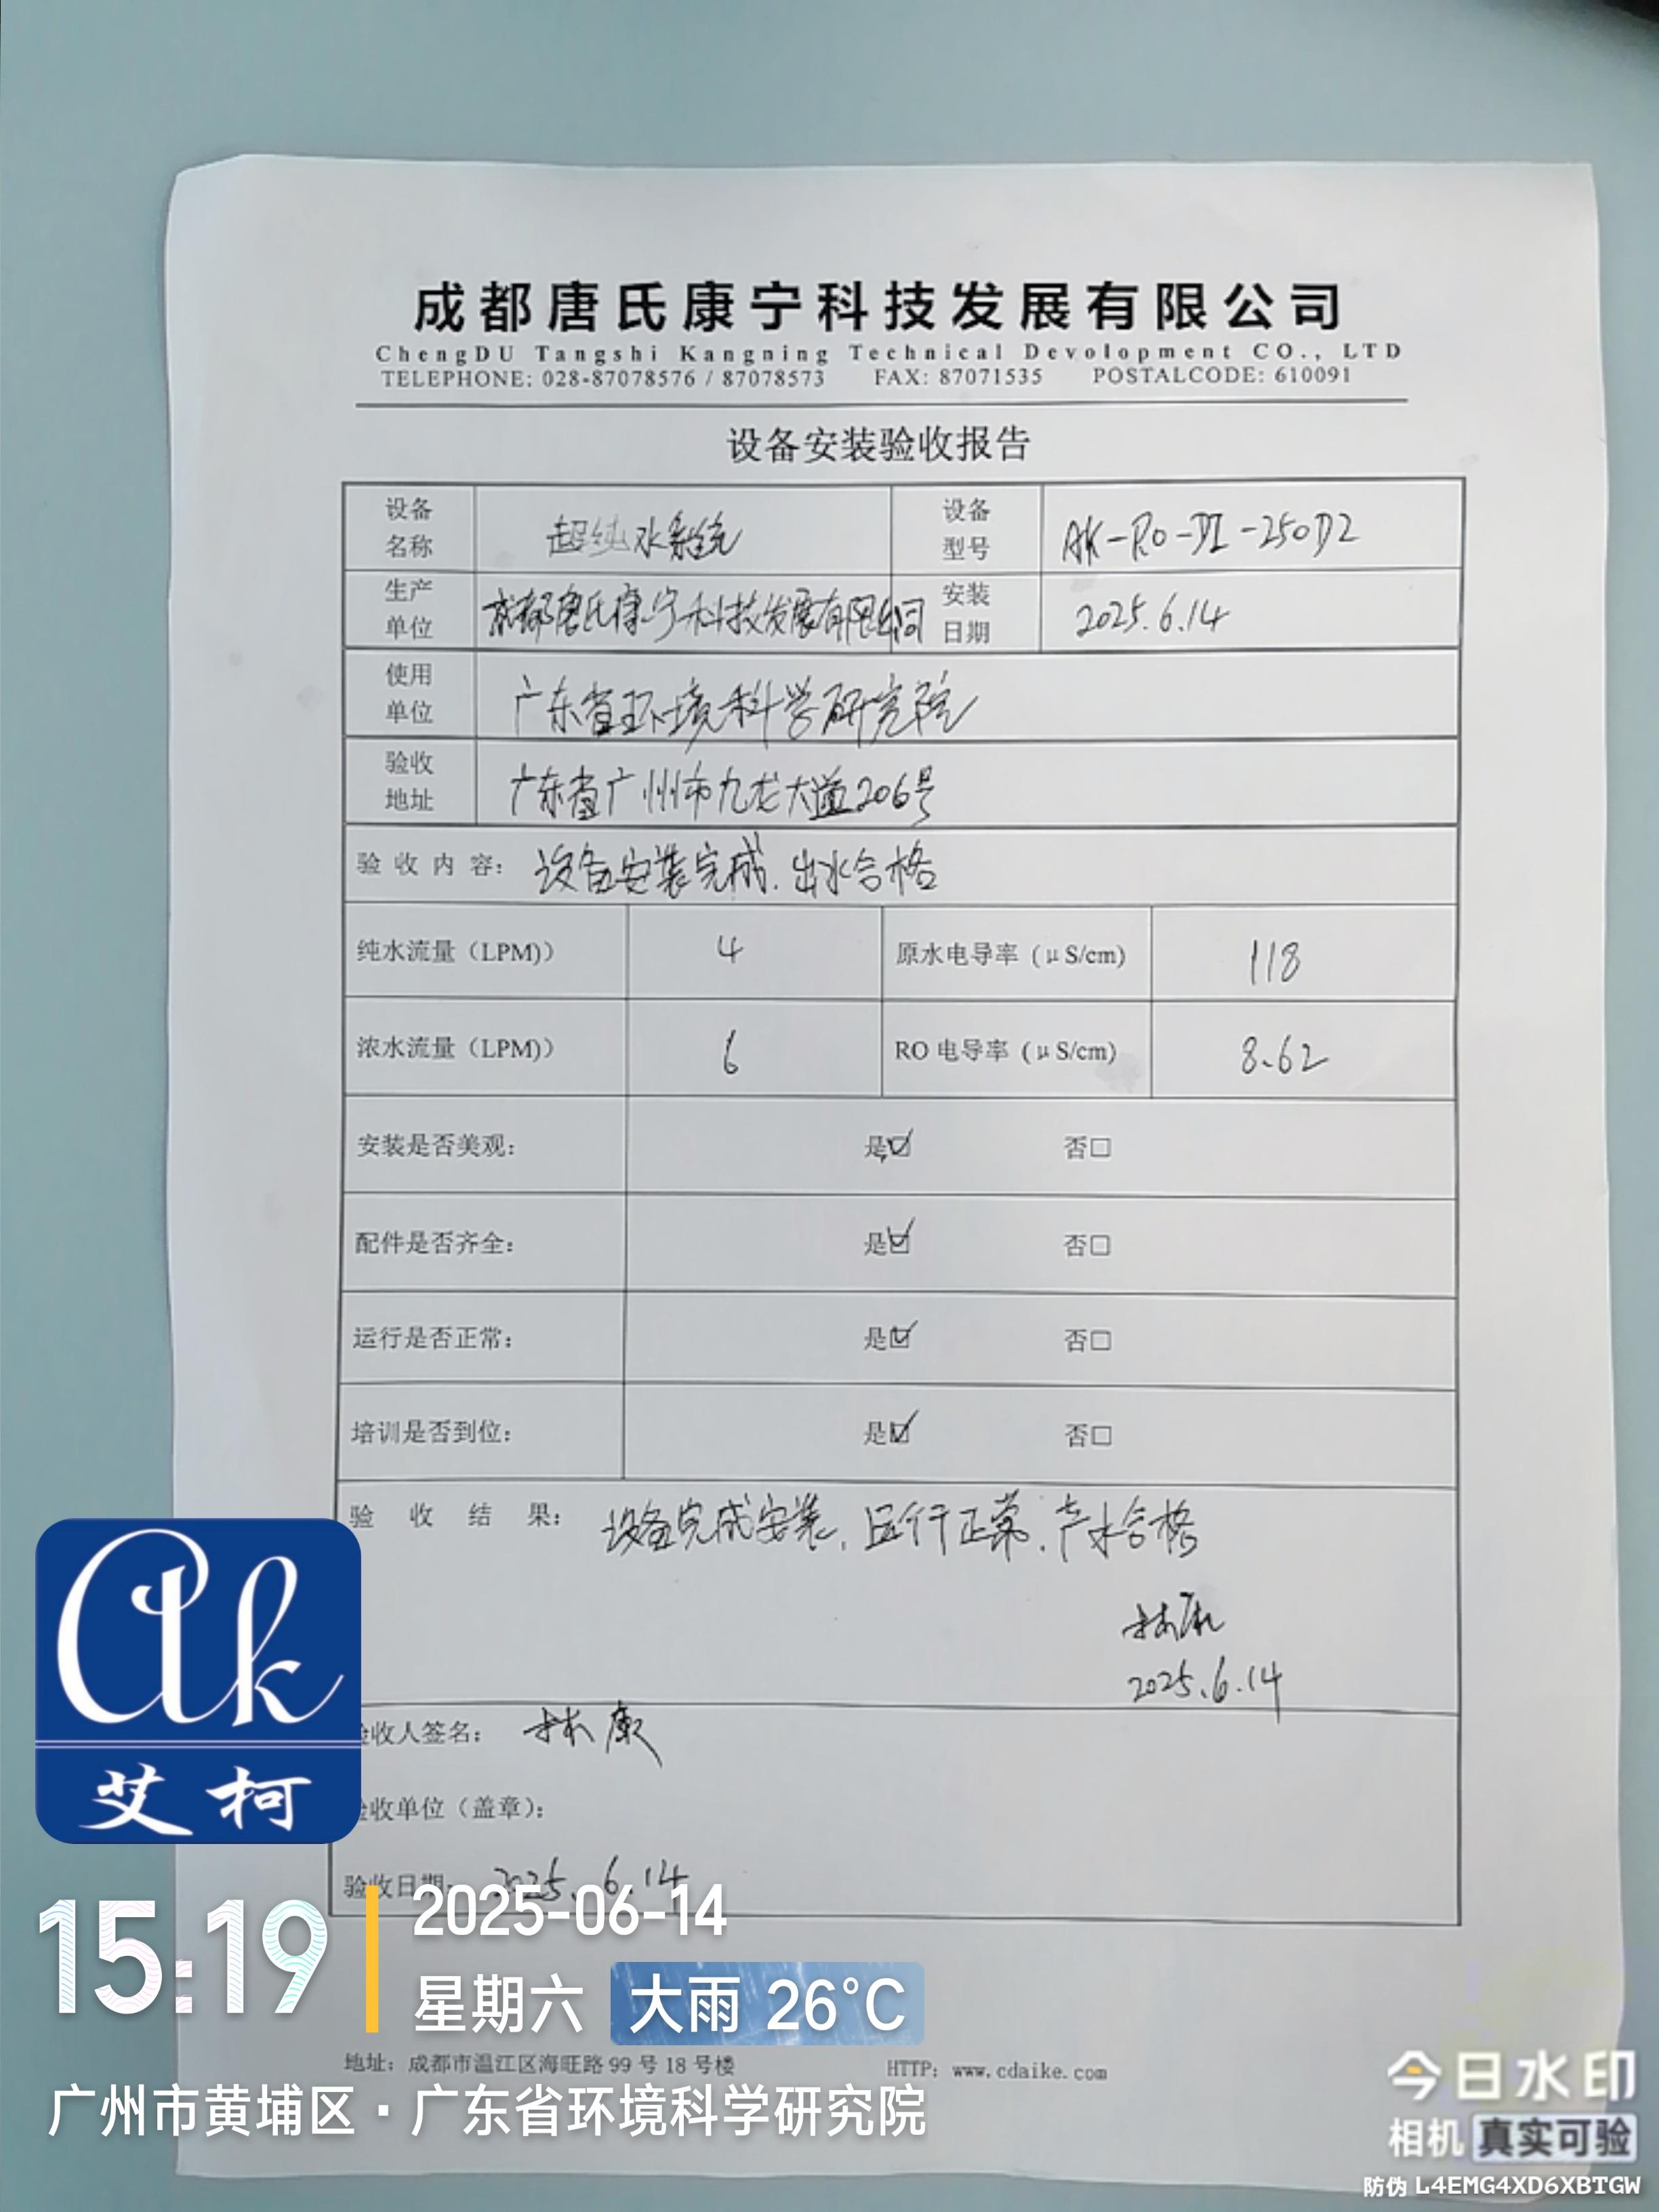 成都唐氏康宁科技发展有限公司
ChengDU Tangshi Kangning Technical Devolopment CO., LTD
TELEPHONE: 028-87078576 / 87078573 FAX: 87071535 POSTALCODE: 610091
设备安装验收报告
设备名称 超纯水系统 设备型号 AK-RO-DI-250D2
生产单位 成都唐氏康宁科技发展有限公司 安装日期 2025.6.14
使用单位 广东省环境科学研究院
验收地址 广东省广州市九龙大道206号
验收内容: 设备安装完成.出水合格
纯水流量（LPM)） 4 原水电导率 (μS/cm) 118
浓水流量（LPM)） 6 RO 电导率 (μS/cm) 8.62
安装是否美观: 是☑ 否□
配件是否齐全: 是☑ 否□
运行是否正常: 是☑ 否□
培训是否到位: 是☑ 否□
验收结果: 设备完成安装,运行正常,产水合格
林康
2025.6.14
收人签名: 林康
收单位（盖章）:
验收日期: 2025.6.14
ak
艾柯
15:19
2025-06-14
星期六 大雨 26°C
地址: 成都市温江区海旺路99号18号楼 HTTP: www.cdaike.com
广州市黄埔区·广东省环境科学研究院
今日水印
相机 真实可验
防伪 L4EMG4XD6XBTGW